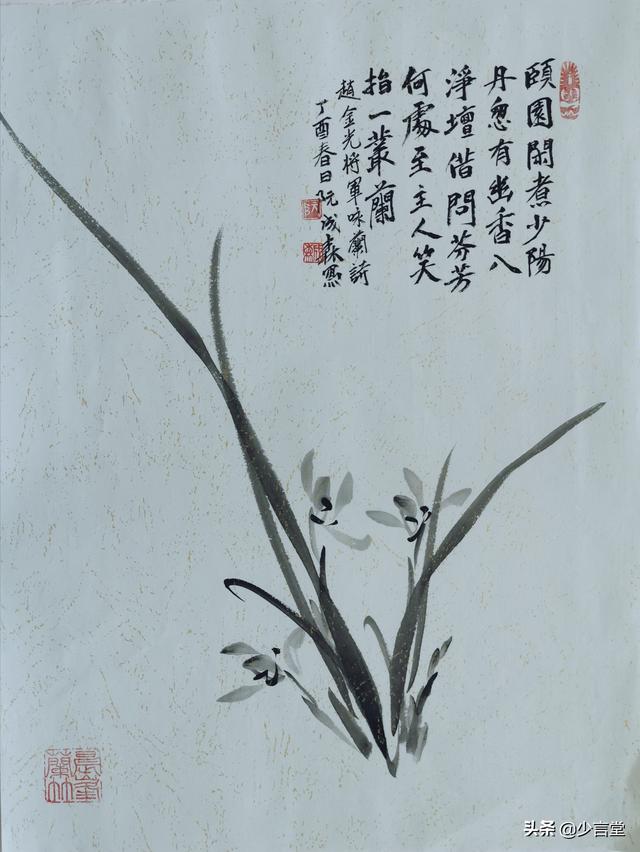 頤園閑煮少陽
丹忽有幽香入
淨壇借問芬芳
何處至主人笑
指一叢蘭
趙金光将軍咏蘭詩
丁酉春日阮成森寫
头条 @少言堂